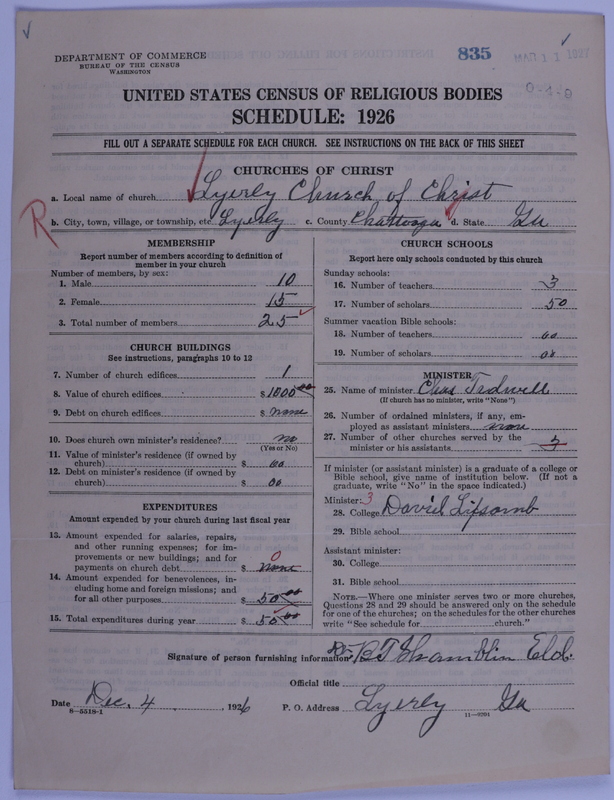 DEPARTMENT OF COMMERCE
BUREAU OF THE CENSUS
WASHINGTON
835
MAR 11 1927
0-4-9
UNITED STATES CENSUS OF RELIGIOUS BODIES
SCHEDULE: 1926
FILL OUT A SEPARATE SCHEDULE FOR EACH CHURCH. SEE INSTRUCTIONS ON THE BACK OF THIS SHEET
CHURCHES OF CHRIST
a. Local name of church Lyerly Church of Christ
R
b. City, town, village, or township, etc. Lyerly c. County Chattooga d. State Ga
MEMBERSHIP
Report number of members according to definition of
member in your church
Number of members, by sex:
1. Male 10
2. Female 15
3. Total number of members 25
CHURCH BUILDINGS
See instructions, paragraphs 10 to 12
7. Number of church edifices 1
8. Value of church edifices $ 1000 00
9. Debt on church edifices $ none
10. Does church own minister's residence? no
(Yes or No)
11. Value of minister's residence (if owned by
church) $ 00
12. Debt on minister's residence (if owned by
church) $ 00
EXPENDITURES
Amount expended by your church during last fiscal year
13. Amount expended for salaries, repairs,
and other running expenses; for im-
provements or new buildings; and for
payments on church debt $ none 0
14. Amount expended for benevolences, in-
cluding home and foreign missions; and
for all other purposes $ 50 00
15. Total expenditures during year $ 50 00
CHURCH SCHOOLS
Report here only schools conducted by this church
Sunday schools:
16. Number of teachers 3
17. Number of scholars 50
Summer vacation Bible schools:
18. Number of teachers 00
19. Number of scholars 00
MINISTER
25. Name of minister Chas Tidwell
(If church has no minister, write "None")
26. Number of ordained ministers, if any, em-
ployed as assistant ministers none
27. Number of other churches served by the
minister or his assistants 3
If minister (or assistant minister) is a graduate of a college or
Bible school, give name of institution below. (If not a
graduate, write "No" in the space indicated.)
Minister: 3
28. College David Lipsomb
29. Bible school
Assistant minister:
30. College
31. Bible school
NOTE.—Where one minister serves two or more churches,
Questions 28 and 29 should be answered only on the schedule
for one of the churches; on the schedules for the other churches
write "See schedule for church."
Signature of person furnishing information Dr. B T Shamblin Eld.
Official title
Date Dec, 4, 1926 P. O. Address Lyerly Ga
8—5518-1
11—9294